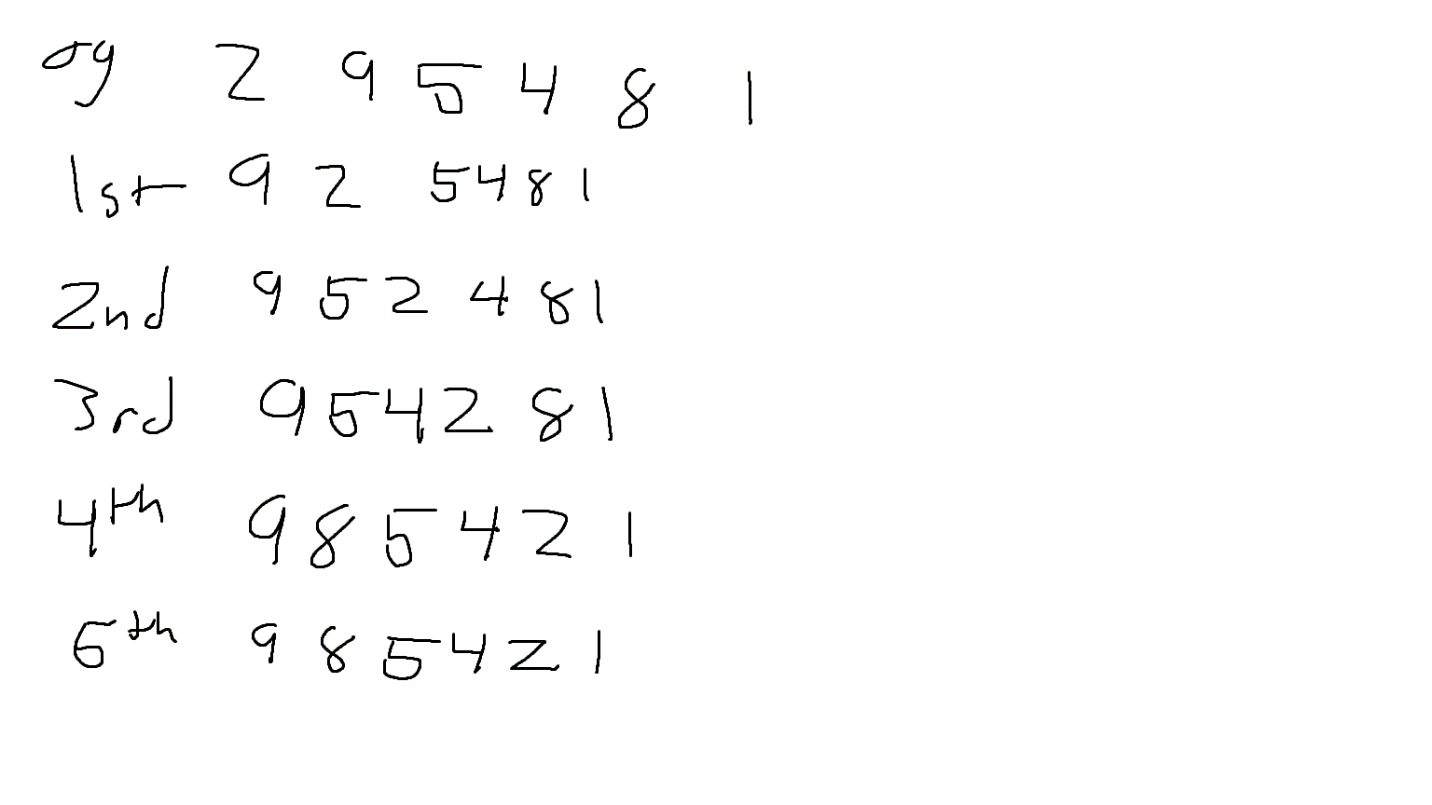 og 2 9 5 4 8 1
1st 9 2 5 4 8 1
2nd 9 5 2 4 8 1
3rd 9 5 4 2 8 1
4th 9 8 5 4 2 1
5th 9 8 5 4 2 1